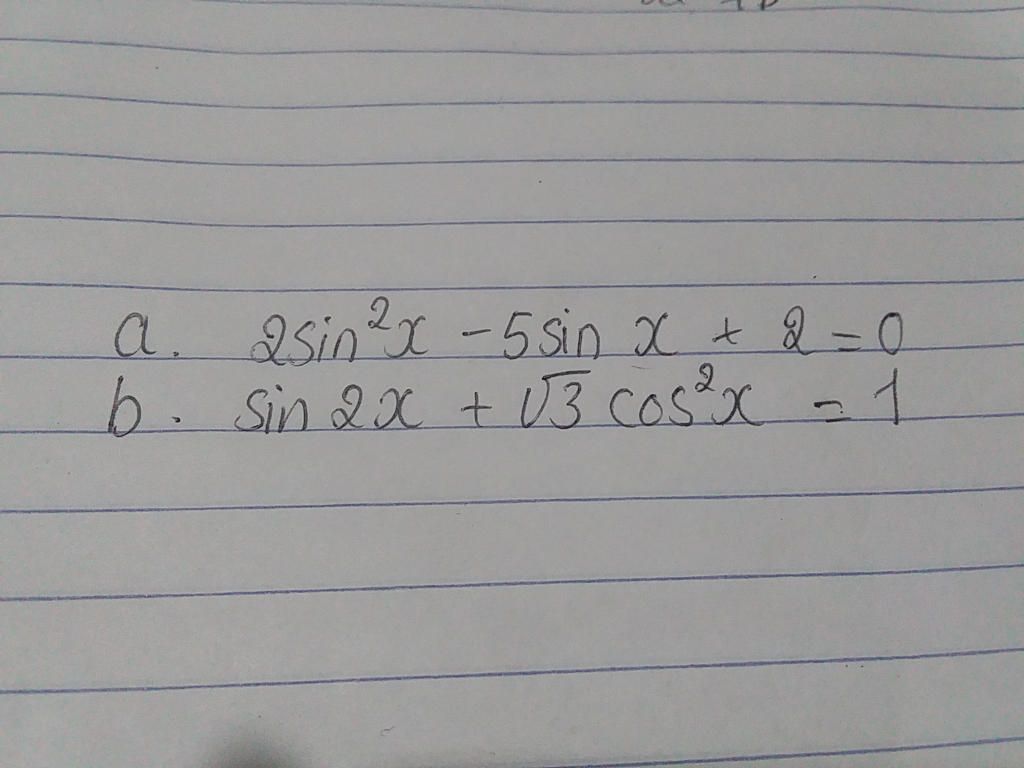 a. 2sin²x - 5sin x + 2 = 0
b. sin 2x + √3 cos²x = 1